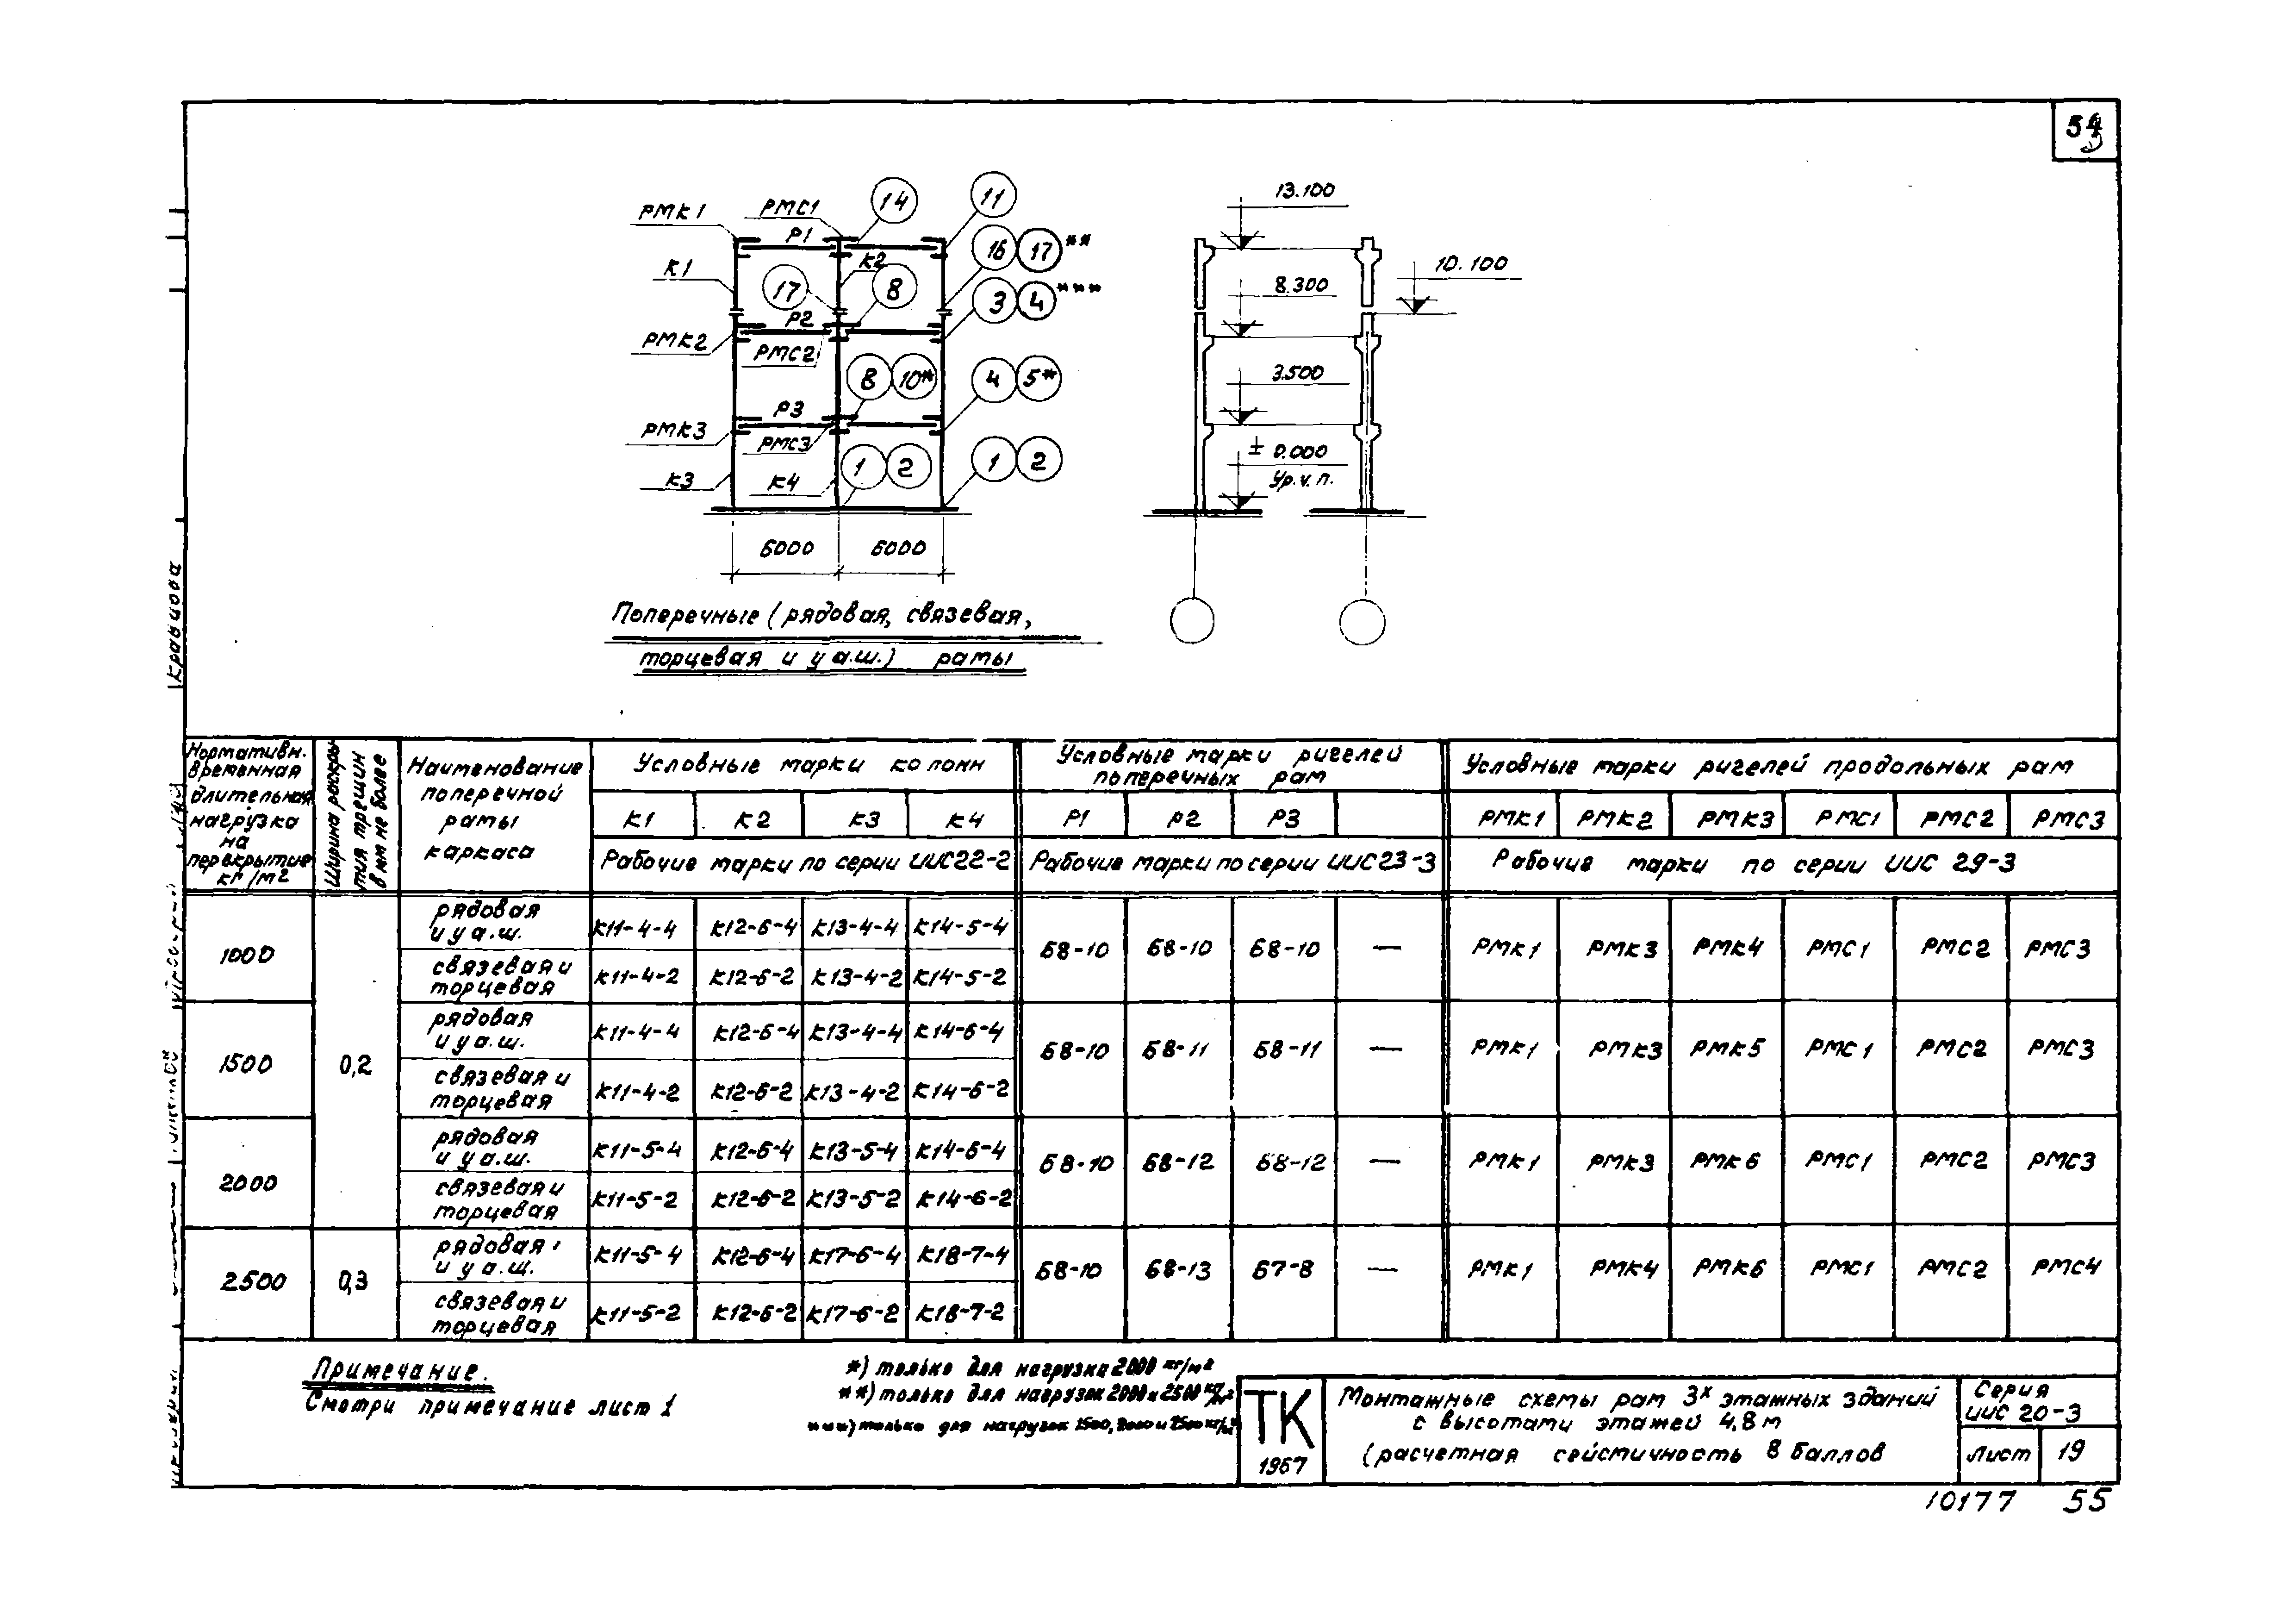 54
РМК1
РМС1
14
11
Р1
16
17**
К1
К2
17
8
3
4***
Р2
РМК2
РМС2
8
10*
4
5*
Р3
РМК3
РМС3
1
2
1
2
К3
К4
6000
6000
13.100
10.100
8.300
3.500
± 0.000
Ур.ч.п.
Поперечные (рядовая, связевая,
торцевая и у а.ш.) рамы
Кравцова
Нормативн.
временная
длительная
нагрузка
на
перекрытие
кг/м2
Ширина раскры
тия трещин
в мм не более
Наименование
поперечной
рамы
каркаса
Условные марки колонн
Условные марки ригелей
поперечных рам
Условные марки ригелей продольных рам
К1 К2 К3 К4 Р1 Р2 Р3 РМК1 РМК2 РМК3 РМС1 РМС2 РМС3
Рабочие марки по серии ИИС22-2 Рабочие марки по серии ИИС23-3 Рабочие марки по серии ИИС 29-3
1000
рядовая
и у а.ш.
К11-4-4 К12-6-4 К13-4-4 К14-5-4
Б8-10 Б8-10 Б8-10 — РМК1 РМК3 РМК4 РМС1 РМС2 РМС3
связевая и
торцевая
К11-4-2 К12-6-2 К13-4-2 К14-5-2
1500
0,2
рядовая
и у а.ш.
К11-4-4 К12-6-4 К13-4-4 К14-6-4
Б8-10 Б8-11 Б8-11 — РМК1 РМК3 РМК5 РМС1 РМС2 РМС3
связевая и
торцевая
К11-4-2 К12-6-2 К13-4-2 К14-6-2
2000
рядовая
и у а.ш.
К11-5-4 К12-6-4 К13-5-4 К14-6-4
Б8-10 Б8-12 Б8-12 — РМК1 РМК3 РМК6 РМС1 РМС2 РМС3
связевая и
торцевая
К11-5-2 К12-6-2 К13-5-2 К14-6-2
2500
0,3
рядовая
и у а.ш.
К11-5-4 К12-6-4 К17-6-4 К18-7-4
Б8-10 Б8-13 Б7-8 — РМК1 РМК4 РМК6 РМС1 РМС2 РМС4
связевая и
торцевая
К11-5-2 К12-6-2 К17-6-2 К18-7-2
Примечание.
Смотри примечание лист 1
*) только для нагрузки 2000 кг/м2
**) только для нагрузок 2000 и 2500 кг/м2
***) только для нагрузок 1500, 2000 и 2500 кг/м2
ТК
1967
Монтажные схемы рам 3х этажных зданий
с высотами этажей 4,8 м
(расчетная сейсмичность 8 баллов
Серия
ИИС 20-3
Лист 19
10177 55